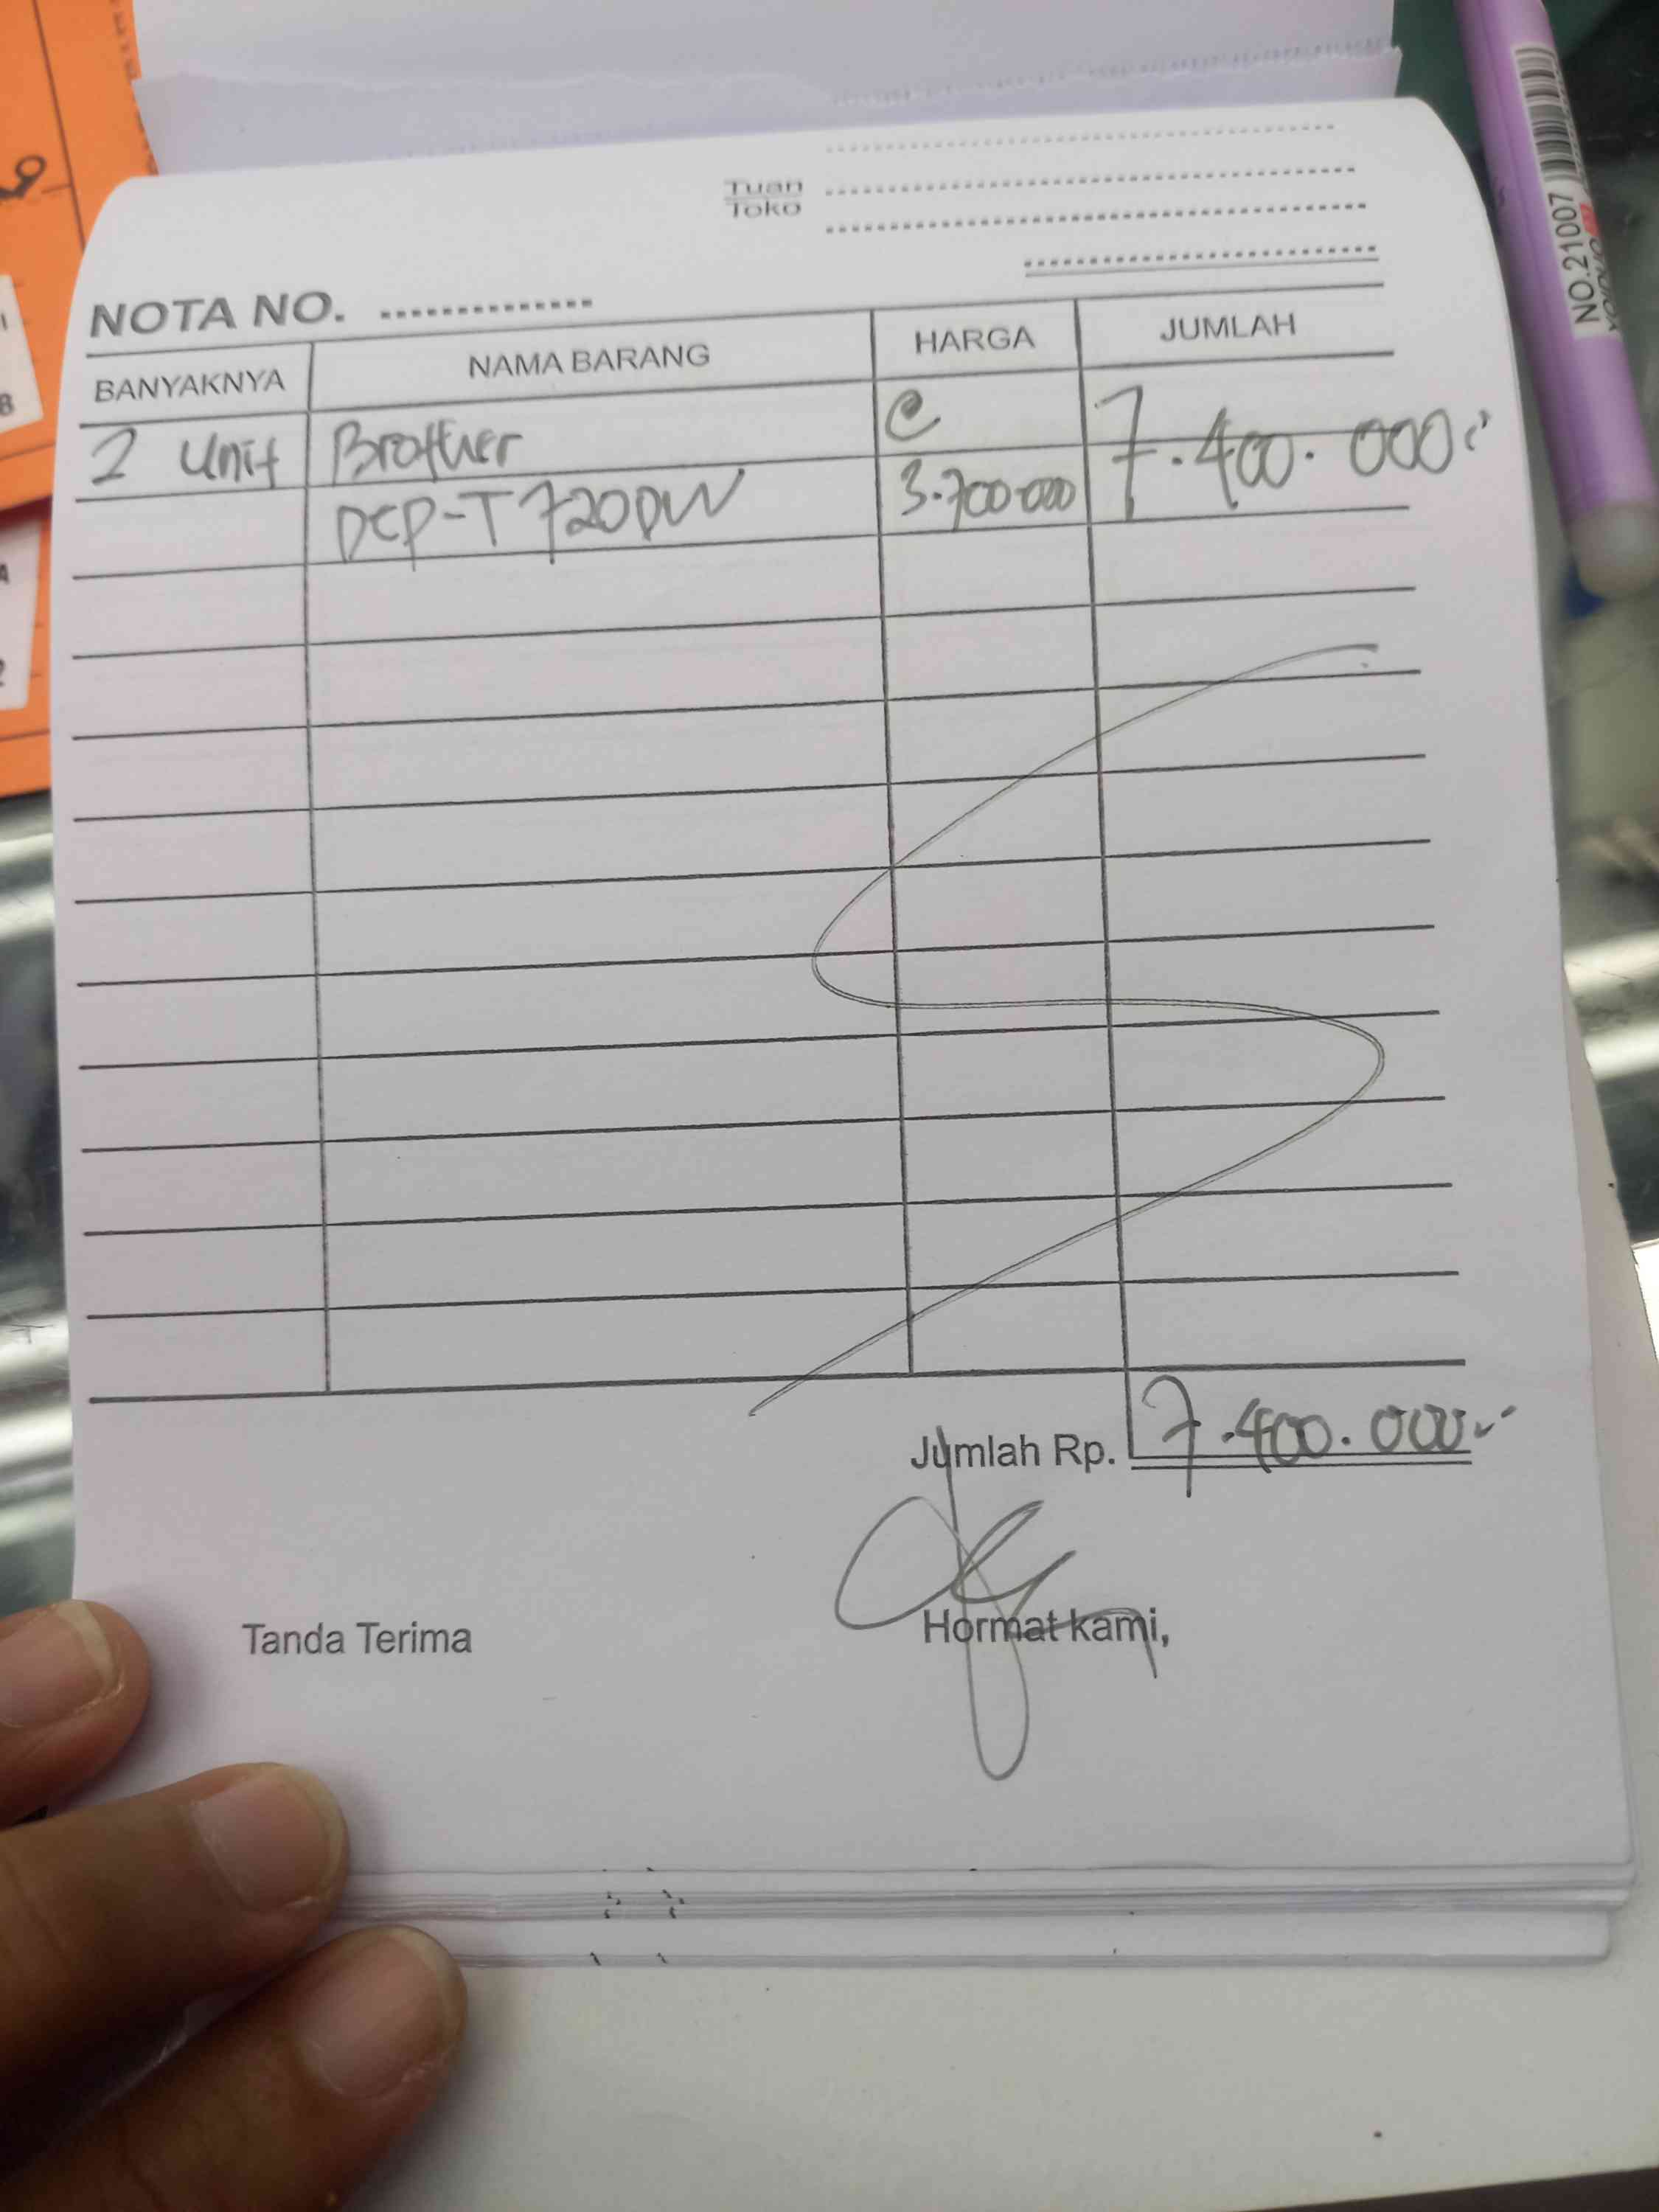 Tuan
Toko
NOTA NO. ..............
BANYAKNYA NAMA BARANG HARGA JUMLAH
2 Unit Brother @ 7.400.000
DCP-T720DW 3.700.000
Jumlah Rp. 7.400.000
Tanda Terima Hormat kami,
NO.21007